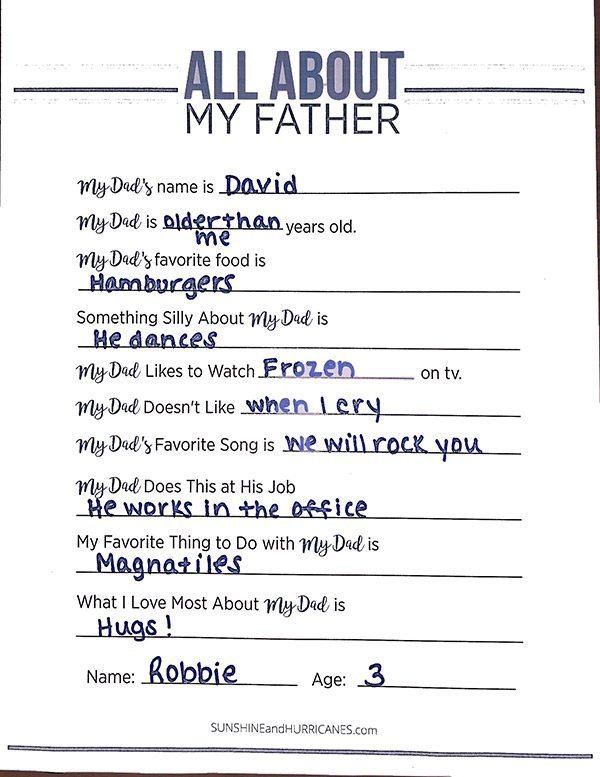 ALL ABOUT
MY FATHER
My Dad's name is David
My Dad is older than years old.
me
My Dad's favorite food is
Hamburgers
Something Silly About My Dad is
He dances
My Dad Likes to Watch Frozen on tv.
My Dad Doesn't Like when I cry
My Dad's Favorite Song is We will rock you
My Dad Does This at His Job
He works in the office
My Favorite Thing to Do with My Dad is
Magnatiles
What I Love Most About My Dad is
Hugs!
Name: Robbie Age: 3
SUNSHINEandHURRICANES.com